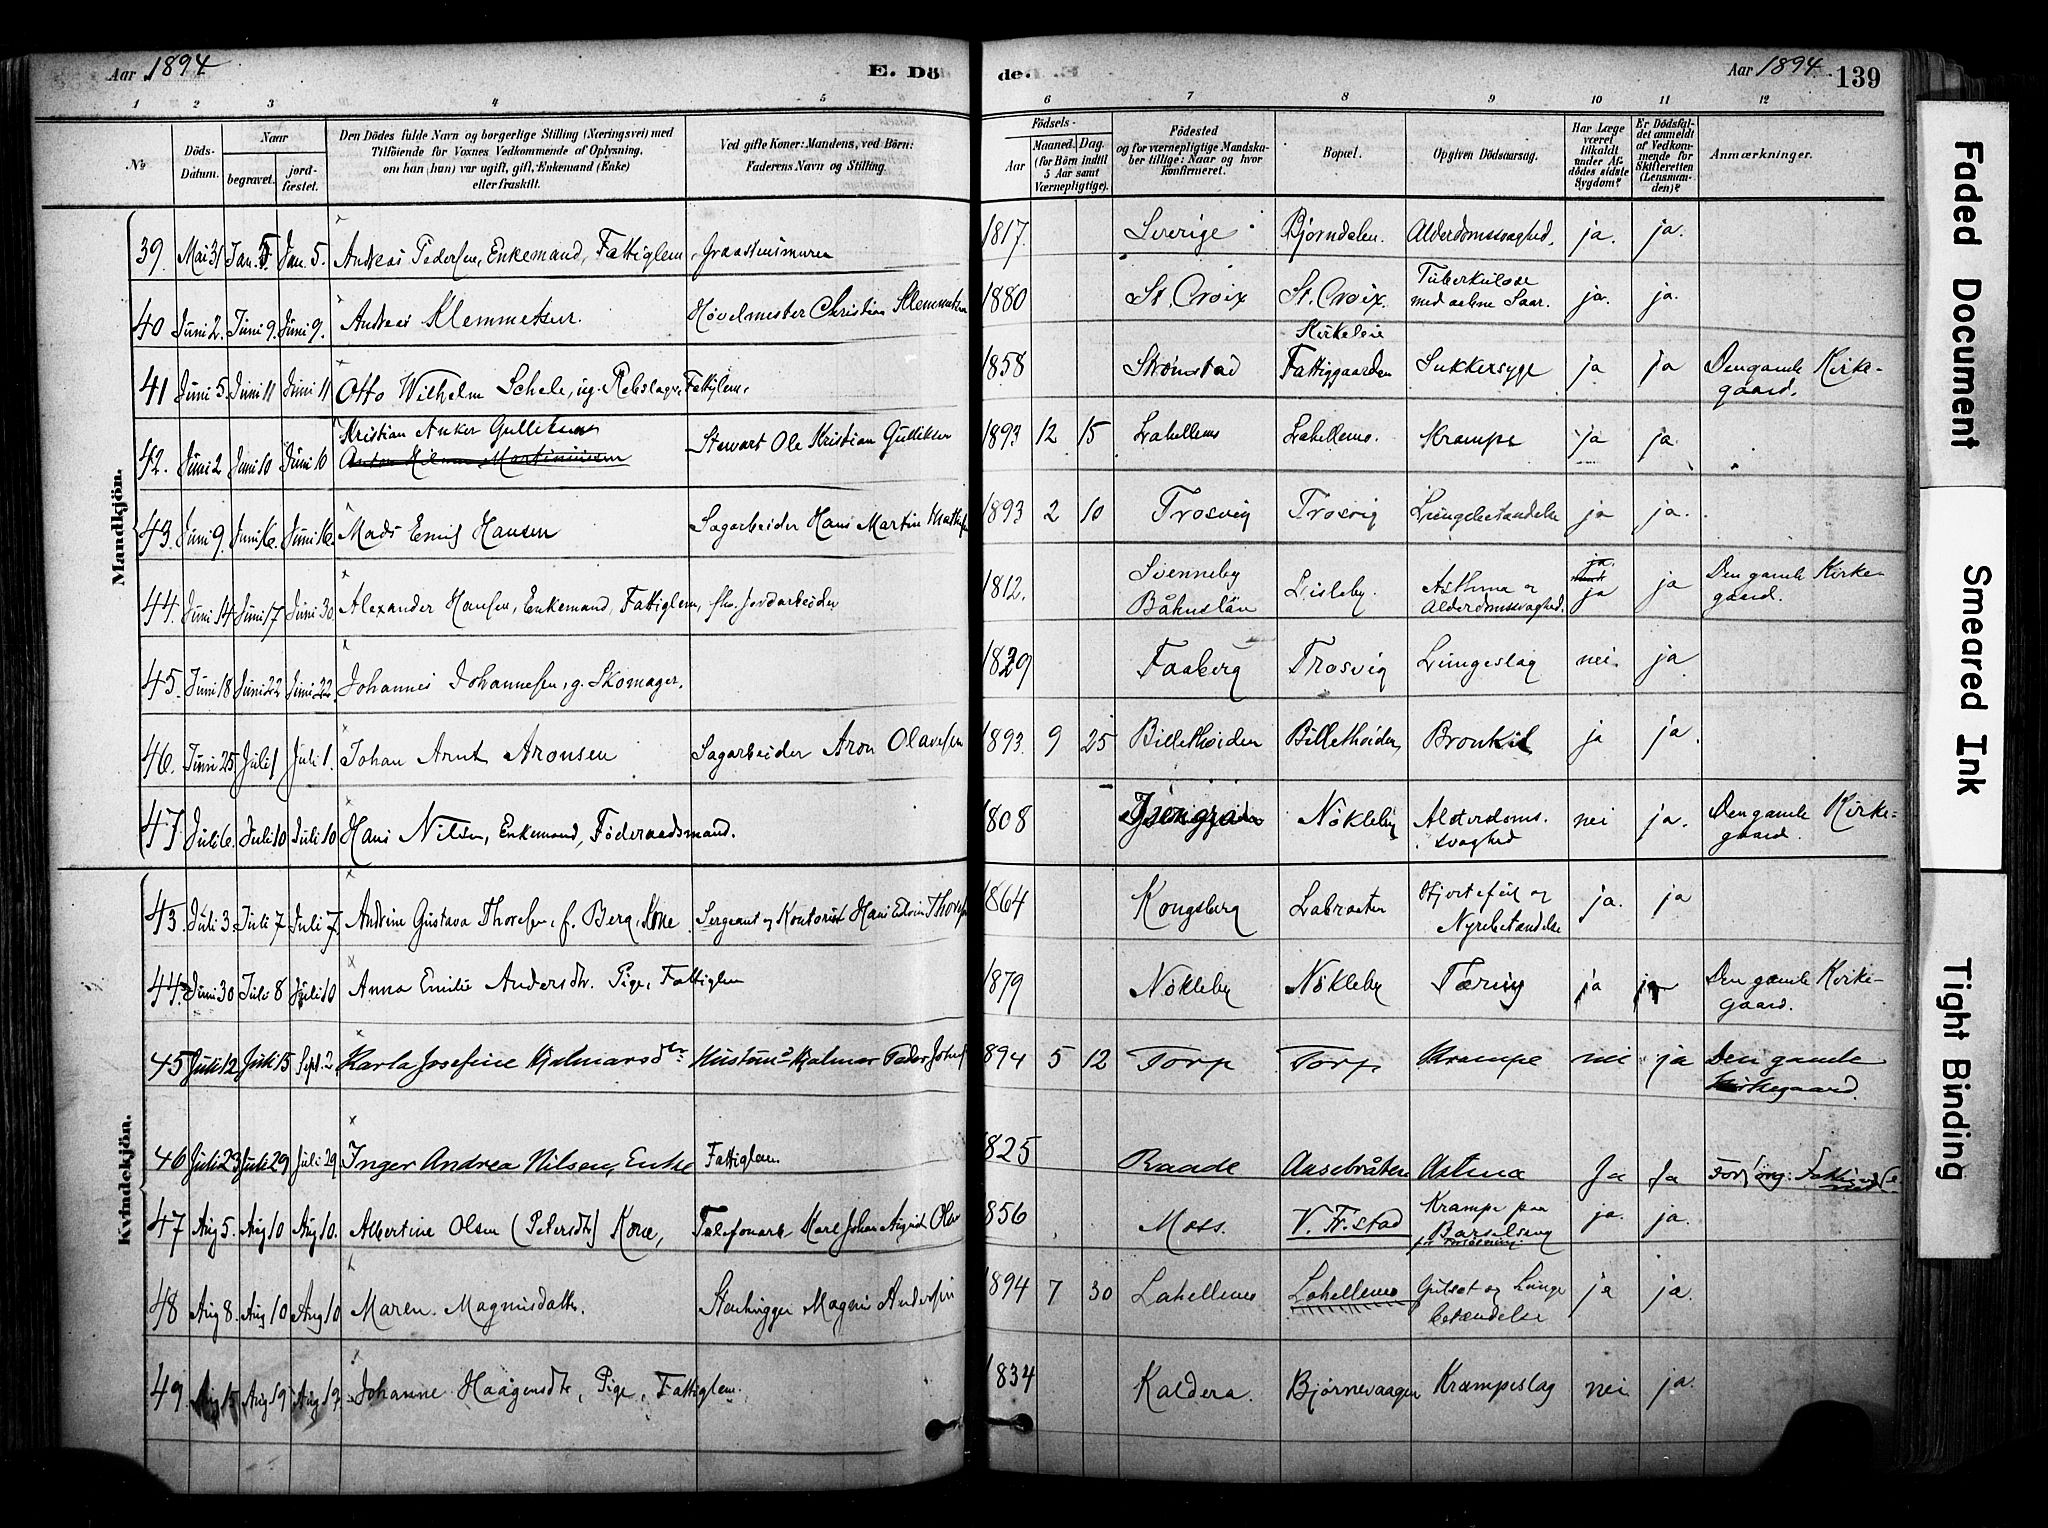 Aar 1894 E. Dö
de. Aar 1894. 139
1 2 3 4 5 6 7 8 9 10 11 12
No
Döds-Datum.
Naar
begravet.
jordfæstet.
Den Dödes fulde Navn og borgerlige Stilling (Næringsvei) med
Tilföiende for Voxnes Vedkommende af Oplysning,
om han (hun) var ugift, gift, Enkemand (Enke)
eller fraskilt.
Ved gifte Koner: Mandens, ved Börn:
Faderens Navn og Stilling.
Födsels-
Aar
Maaned. Dag.
(for Börn indtil
5 Aar samt
Værnepligtige).
Födested
og for værnepligtige Mandska-
ber tillige: Naar og hvor
konfirmeret.
Bopæl.
Opgiven Dödsaarsag.
Har Læge
været
tilkaldt
under Af-
dödes sidste
Sygdom?
Er Dödsfal-
det anmeldt
af Vedkom-
mende for
Skifteretten
(Lensman-
den)?
Anmærkninger.
Mandkjön.
39. Mai 31 Jun. 5 Jun. 5. Andreas Pedersen, Enkemand, Fattiglem, 1817. Sverige Bjørndalen. Alderdomssvaghed. ja. ja.
40 Juni 2. Juni 9. Juni 9. Andreas Klemmetsen. Høvelmester Christian Klemmetsen 1880 St. Croix St. Croix. Tuberkulose med aabne Saar. ja. ja.
41 Juni 5. Juni 11 Juni 11 Otto Wilhelm Schele, ug. Rebslager, Fattiglem, 1858 Strømstad Kirkeleie Fattiggaarden Sukkersyge ja ja Den gamle Kirke-
gaard.
42. Juni 2 Juni 10 Juni 10 Kristian Anker Gulliksen Stewart Ole Kristian Gulliksen 1893 12 15 Lahellems Lahellems. Krampe ja ja.
43. Juni 9. Juni 16. Juni 16. Mads Emil Hansen Sagarbeider Hans Martin 1893 2 10 Trosvig Trosvig Lungebetændelse ja ja.
44. Juni 14 Juni 17 Juni 30 Alexander Hansen, Enkemand, Fattiglem, fhv. Jordarbeider 1812. Svenneby Båhuslän Lisleby. Asthma og Alderdomssvaghed. ja ja Den gamle Kirke-
gaard.
45. Juni 18 Juni 22 Juni 22. Johannes Johannesen, g. Skomager. 1829 Faaberg Trosvig Lungeslag nei. ja
46. Juni 25. Juli 1 Juli 1. Johan Arnt Aronsen Sagarbeider Aron Olavesen 1893. 9 25 Billetholden Billetholden Bronkit ja ja.
47. Juli 6. Juli 10 Juli 10 Hans Nilsen, Enkemand, Föderaadsmand. 1808 Nökleby Alderdoms-
svaghed nei ja. Den gamle Kirke-
gaard.
Kvindekjön.
43. Juli 3. Juli 7 Juli 7. Andrine Gustava Thoresen, f. Berg, Kone Sergeant og Kontorist Hans Edvin 1864 Kongsberg Labraaten Hjertefeil og Nyrebetændelse ja. ja
44. Juni 30 Juli 8 Juli 10 Anna Emilie Andersdtr. Pige, Fattiglem 1879 Nökleby Nökleby Tæring ja ja Den gamle Kirke-
gaard.
45 Juli 12 Juli 15 Sept. 2 Karla Josefine Hjalmarsdtr Hjalmar 1894 5 12 Torp Torp Krampe nei ja Den gamle
Kirkegaard.
46 Juli 23 Juli 29 Juli 29 Inger Andrea Nilsen, Enke Fattiglem 1825 Raade Aasebråten Astma Ja Ja
47 Aug 5. Aug 10 Aug 10. Albertine Olsen (Petersdtr) Kone, Telefonarb. Karl Johan 1856 Moss. V. Fr.stad Krampe paa Barselseng ja. ja.
48 Aug 8. Aug 10 Aug 10 Maren Magnusdatter. Stenhugger Magnus Andersen 1894 7 30 Lahellems Lahellems Gulsot og Lunge
betændelse ja ja.
49. Aug 15 Aug 19 Aug 19. Johanne Haagensdtr, Pige, Fattiglem. 1834 Kaldera. Bjørnevaagen Krampeslag nei ja.
Faded Document
Smeared Ink
Tight Binding